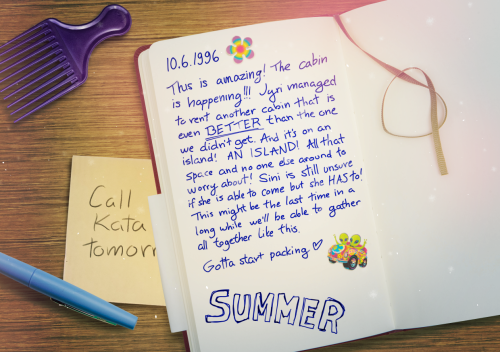 10.6.1996
This is amazing! The cabin
is happening!!! Jyri managed
to rent another cabin that is
even BETTER than the one
we didn't get. And it's on an
island! AN ISLAND! All that
space and no one else around to
worry about! Sini is still unsure
if she is able to come but she HAS to!
This might be the last time in a
long while we'll be able to gather
all together like this.
Gotta start packing ♡
SUMMER
Call
Kata
tomorr